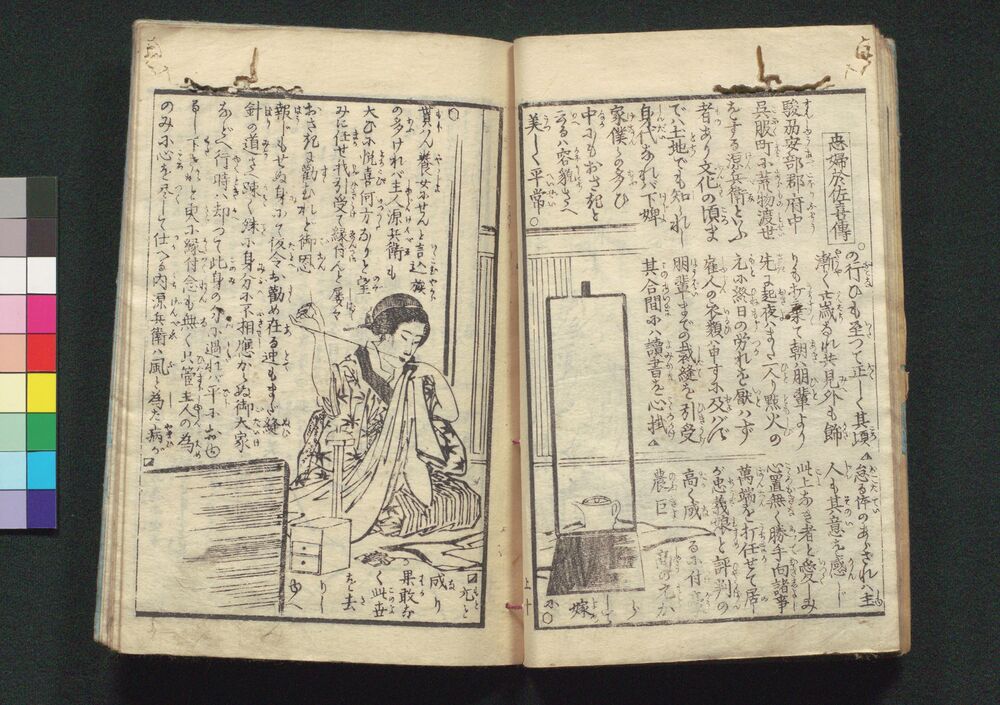 忠婦於佐喜傳
駿刕安部郡府中
呉服町に荒物渡世
をする源兵衛といふ
者あり文化の頃ま
で土地でも知れし
身代なれバ下婢
家僕も多き
中にもおさきと
云るハ容貌さへ
美しく平常○
○の行ひも至つて正しく其頃
漸く廿歳なれ共見外も飾
りも打棄て朝ハ朋輩より
先に起夜ハまた一人り點火の
元に終日の労れを厭ハず
雇人の衣類ハ申すに及バず
朋輩までの裁縫を引受
其合間にハ讀書を心掛▲
▲怠る体のあらざれバ主
人も其意を感じ
此上なき者と愛しみ
心置無く勝手向諸事
萬端を打任せて居
が忠義娘と評判の
高く成るに付
農巨商の
嫁に○
○
貰ハん養女にせんと言込族
の多ければ主人源兵衛も
大ひに悦喜何方なりと望
みに任せ我引受て縁付んと屡々
おさきに勸むれど御恩
報じもせぬ身にて仮令お勸め在る迚もまだ縫
針の道さへ疎く殊に身分に不相應からぬ御大家
などへ行時ハ却つて此身の
下されと更に縁付念も無く只管主人の為
のみに心を尽して仕へる内源兵衛ハ風と為た病が
元と
成り
果敢な
く此世
を去
りし
ゆへ
上十